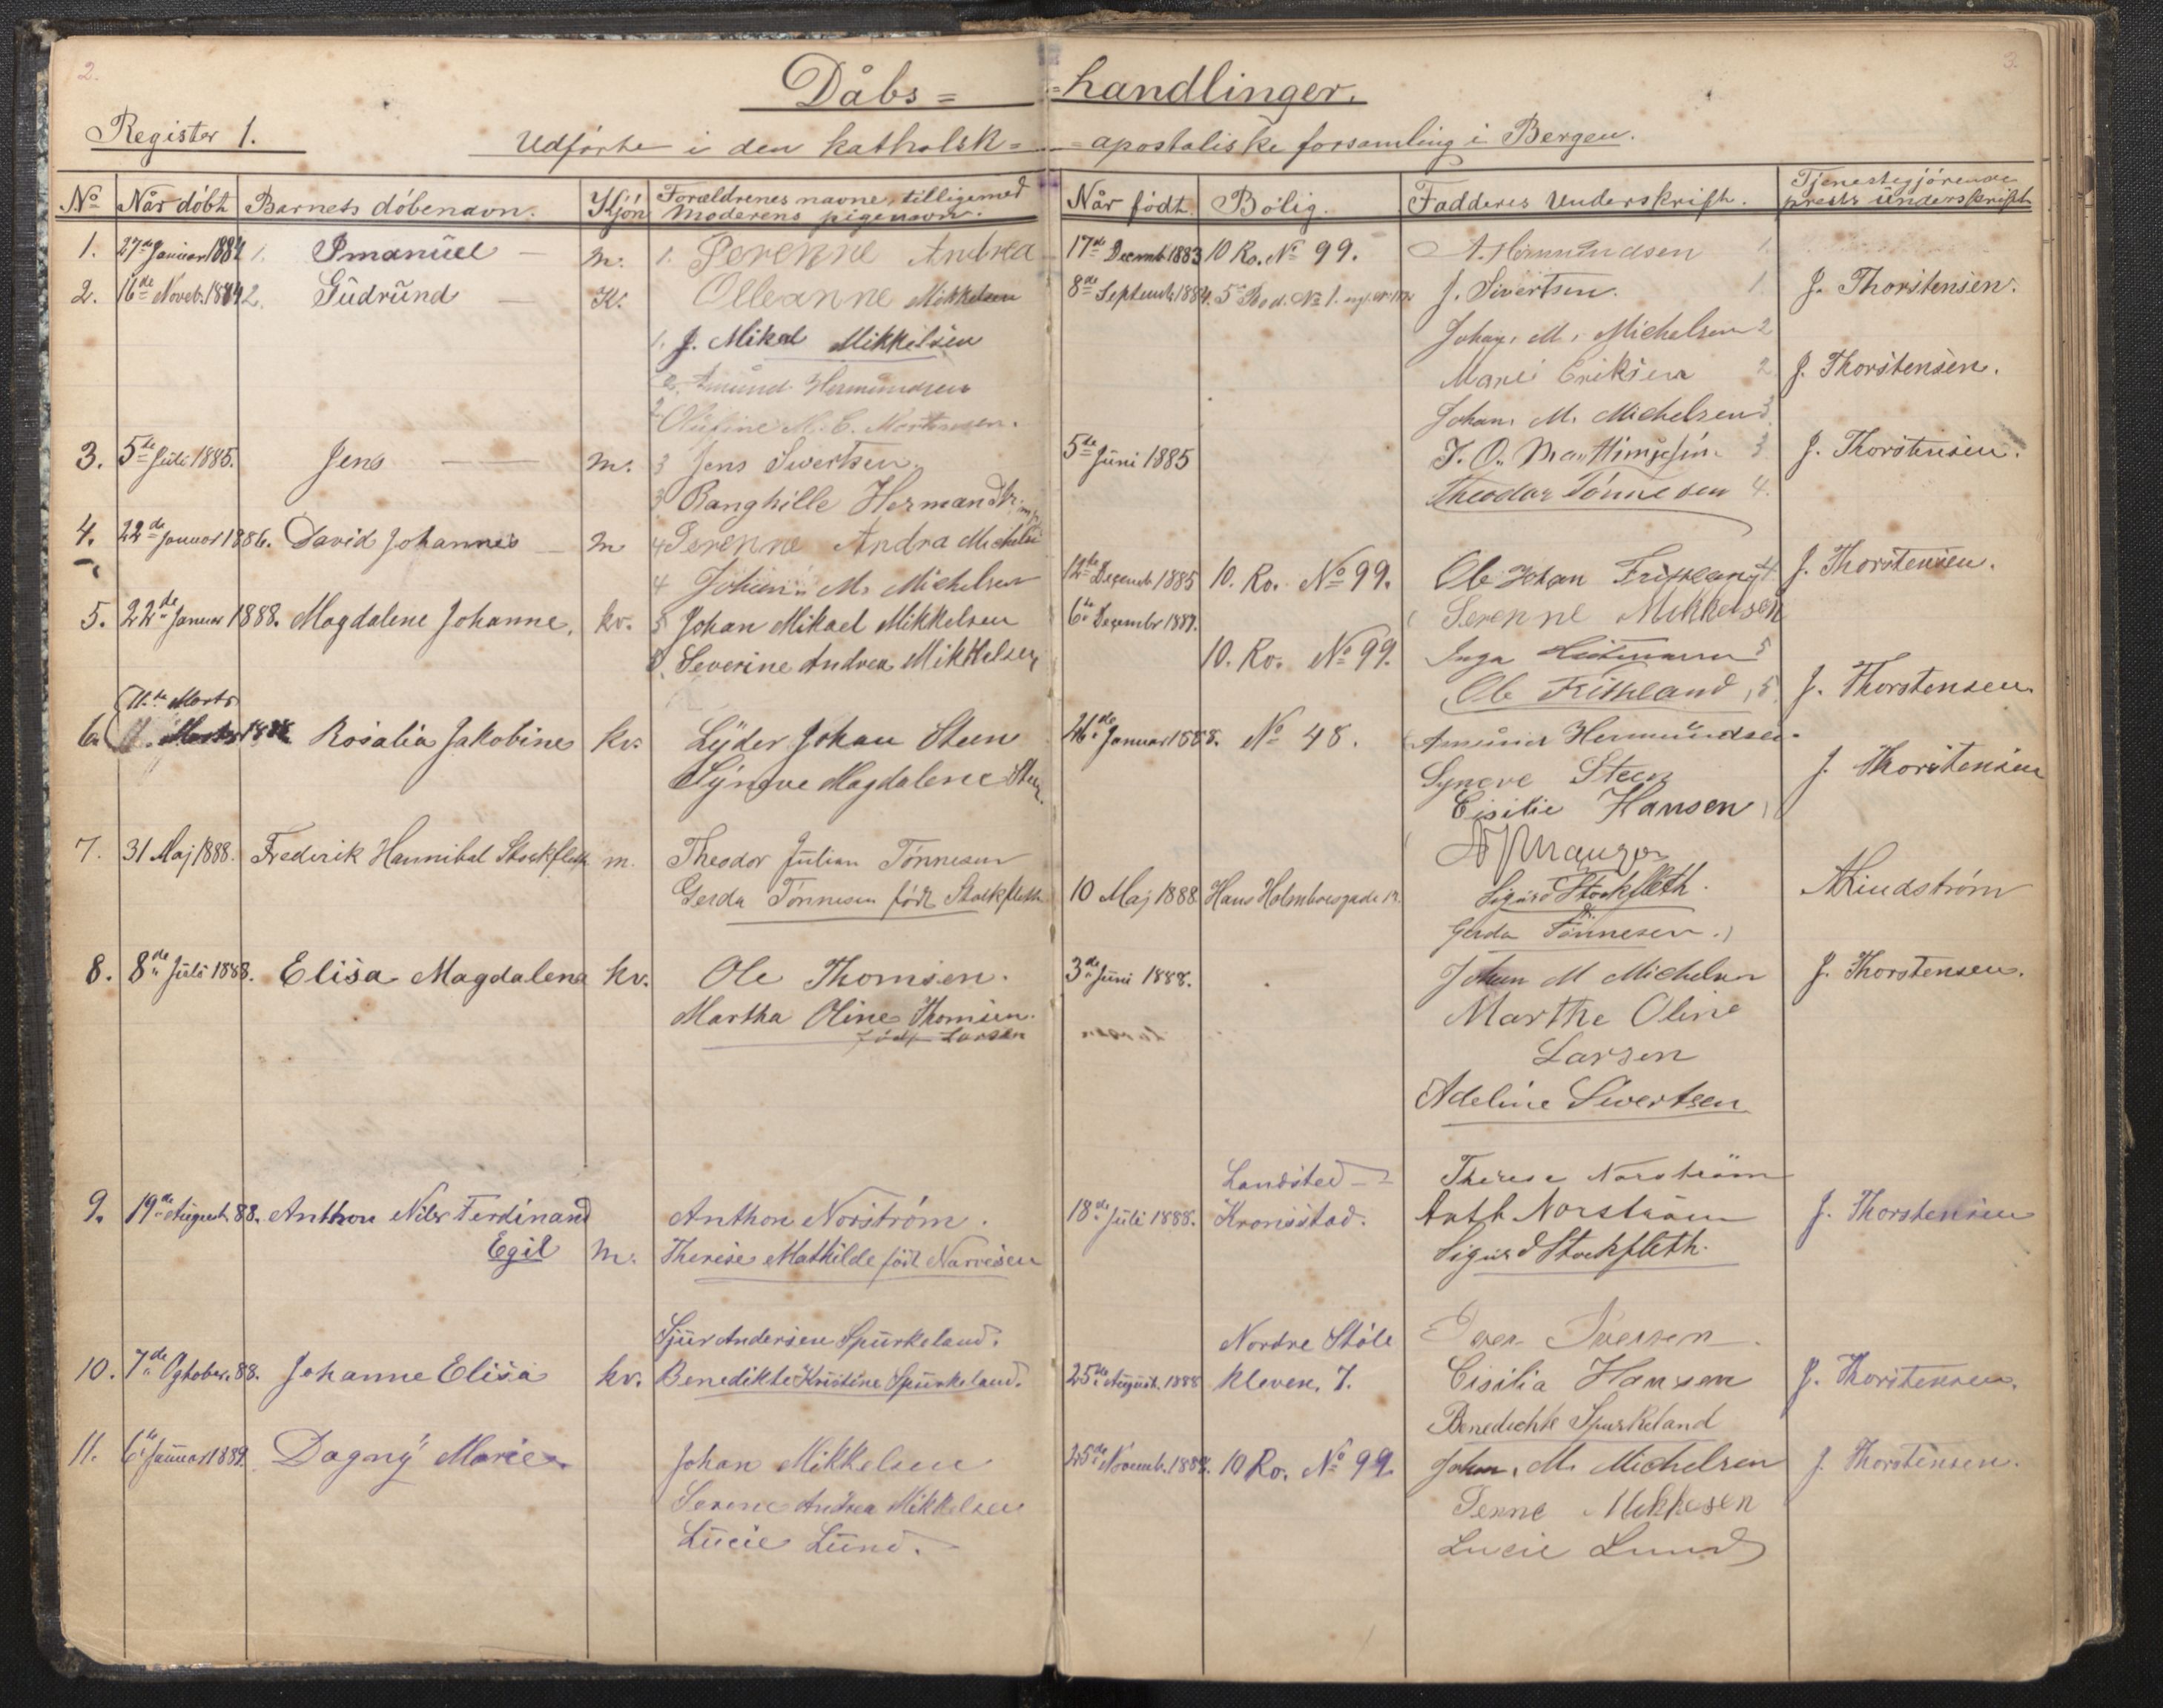 2.
3.
Dåbs= =handlinger.
Register 1.
Udførte i den katholsk= =apostoliske forsamling i Bergen.
No Når döbt Barnets döbenavn. Kjön Forældrenes navne, tilligemed Moderens pigenavn. Når födt. Bolig. Fadderes Underskrift. Tjenestegjörende prests underskrift
1. 27de Januar 1884 1. Imanuel — m. 1. Serenne Andrea 17de Decemb 1883 10 Ro. No 99. A. Hermundsen 1.
2. 16de Noveb. 1884 2. Gudrund — K. Olleanne Mikkelsen 8de Septemb 1884. 5te Rod. No 1. J. Sivertsen. 1 J. Thorstensen.
1. J. Mikal Mikkelsen Johan. M. Michelsen 2
2. Amund Hermundsen Marie Eriksen 2 J. Thorstensen.
2 Olufine M. C. Mortensen. Johan. M. Michelsen 3.
3. 5te Juli 1885. Jens — m. 3 Jens Sivertsen. 5de Juni 1885 3 J. Thorstensen.
3 Ranghille Hermandsr. Theodor Tönnesen 4.
4. 22de Januar 1886. David Johannes — m 4 Serenne Andra Michels
4 Johan M. Michelsen 12te Decemb. 1885 10. Ro. No 99. Ole Johan 4. J. Thorstensen.
5. 22de Januar 1888. Magdalene Johanne. kv. 5 Johan Mikael Mikkelsen 6te Decembr 1887. Serenne Mikkelsen
5. Severine Andrea Mikkelsen 10. Ro. No 99. Inga 5
Ole Friskland, 5. J. Thorstensen.
11.te Marts
6. 11. Marts 1888 Rosalia Jakobine kv. Lyder Johan Steen 26de Januar 1888. No 48. Amund Hermundsen.
Syneve Magdalene Steen. Syneve Steen J. Thorstensen
Cisilie Hansen
7. 31 Maj 1888. Frederik Hannibal Stockfleth m. Theodor Julian Tönnesen
Gerda Tönnesen födt Stockfleth 10 Maj 1888 Hans Holmboesgade Sigurd Stockfleth. A Lindström
Gerda Tönnesen.
8. 8de Juli 1888. Elisa Magdalena kv. Ole Thomsen. 3de Juni 1888. Johan M Michelsen J. Thorstensen.
Martha Oline Thomsen. Marthe Oline
född Larsen Larsen
Adeline Sivertsen
Landsted — Therese Norström
9. 19de August 88. Anthon Nils Ferdinand Anthon Norström. 18de Juli 1888. Kronstad. Anth Norström J. Thorstensen
Egil m. Therese Mathilde födt Narvesen Sigurd Stockfleth.
Sjur Andersen Spurkeland. Nordre Stöle Iversen
10. 7de Ogtober. 88. Johanne Elisa kv. Benedikte Kristine Spurkeland. 25de August. 1888 kleven, 7. Cisilia Hansen J. Thorstensen.
Benedichte Spurkeland
11. 6te Januar 1889. Dagny Marie Johan Mikkelsen 25de Novemb. 1888. 10 Ro. No 99. Johan. M. Michelsen J. Thorstensen.
Serene Andrea Mikkelsen Mikkesen
Lucie Lund. Lucie Lund